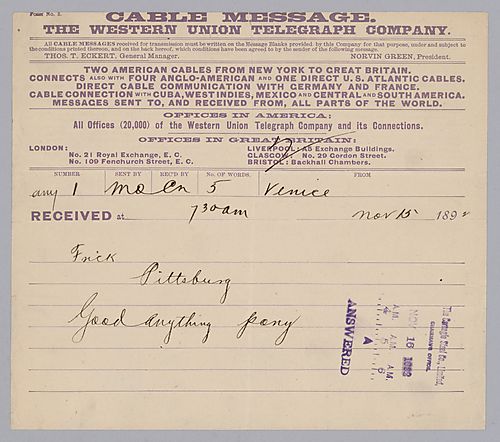 Form No. 2.
CABLE MESSAGE.
THE WESTERN UNION TELEGRAPH COMPANY.
All CABLE MESSAGES received for transmission must be written on the Message Blanks provided by this Company for that purpose, under and subject to
the conditions printed thereon, and on the back hereof, which conditions have been agreed to by the sender of the following message.
THOS. T. ECKERT, General Manager. NORVIN GREEN, President.
TWO AMERICAN CABLES FROM NEW YORK TO GREAT BRITAIN.
CONNECTS ALSO WITH FOUR ANGLO-AMERICAN AND ONE DIRECT U.S. ATLANTIC CABLES.
DIRECT CABLE COMMUNICATION WITH GERMANY AND FRANCE.
CABLE CONNECTION WITH CUBA, WEST INDIES, MEXICO AND CENTRAL AND SOUTH AMERICA.
MESSAGES SENT TO, AND RECEIVED FROM, ALL PARTS OF THE WORLD.
OFFICES IN AMERICA:
All Offices (20,000) of the Western Union Telegraph Company and its Connections.
OFFICES IN GREAT BRITAIN:
LONDON: LIVERPOOL: A5 Exchange Buildings.
No. 21 Royal Exchange, E. C. GLASGOW: No. 29 Gordon Street.
No. 109 Fenchurch Street, E. C. BRISTOL: Backhall Chambers.
NUMBER SENT BY REC'D BY No. OF WORDS. FROM
any 1 Mo Cn 5 Venice
RECEIVED at 730am Nov 15 1892
Frick
Pittsburg
Good Anything pony
ANSWERED
A.M. A.M. A.M.
4 5 6
A
NOV 16 1892
The Carnegie Steel Co., Limited,
CHAIRMAN'S OFFICE.